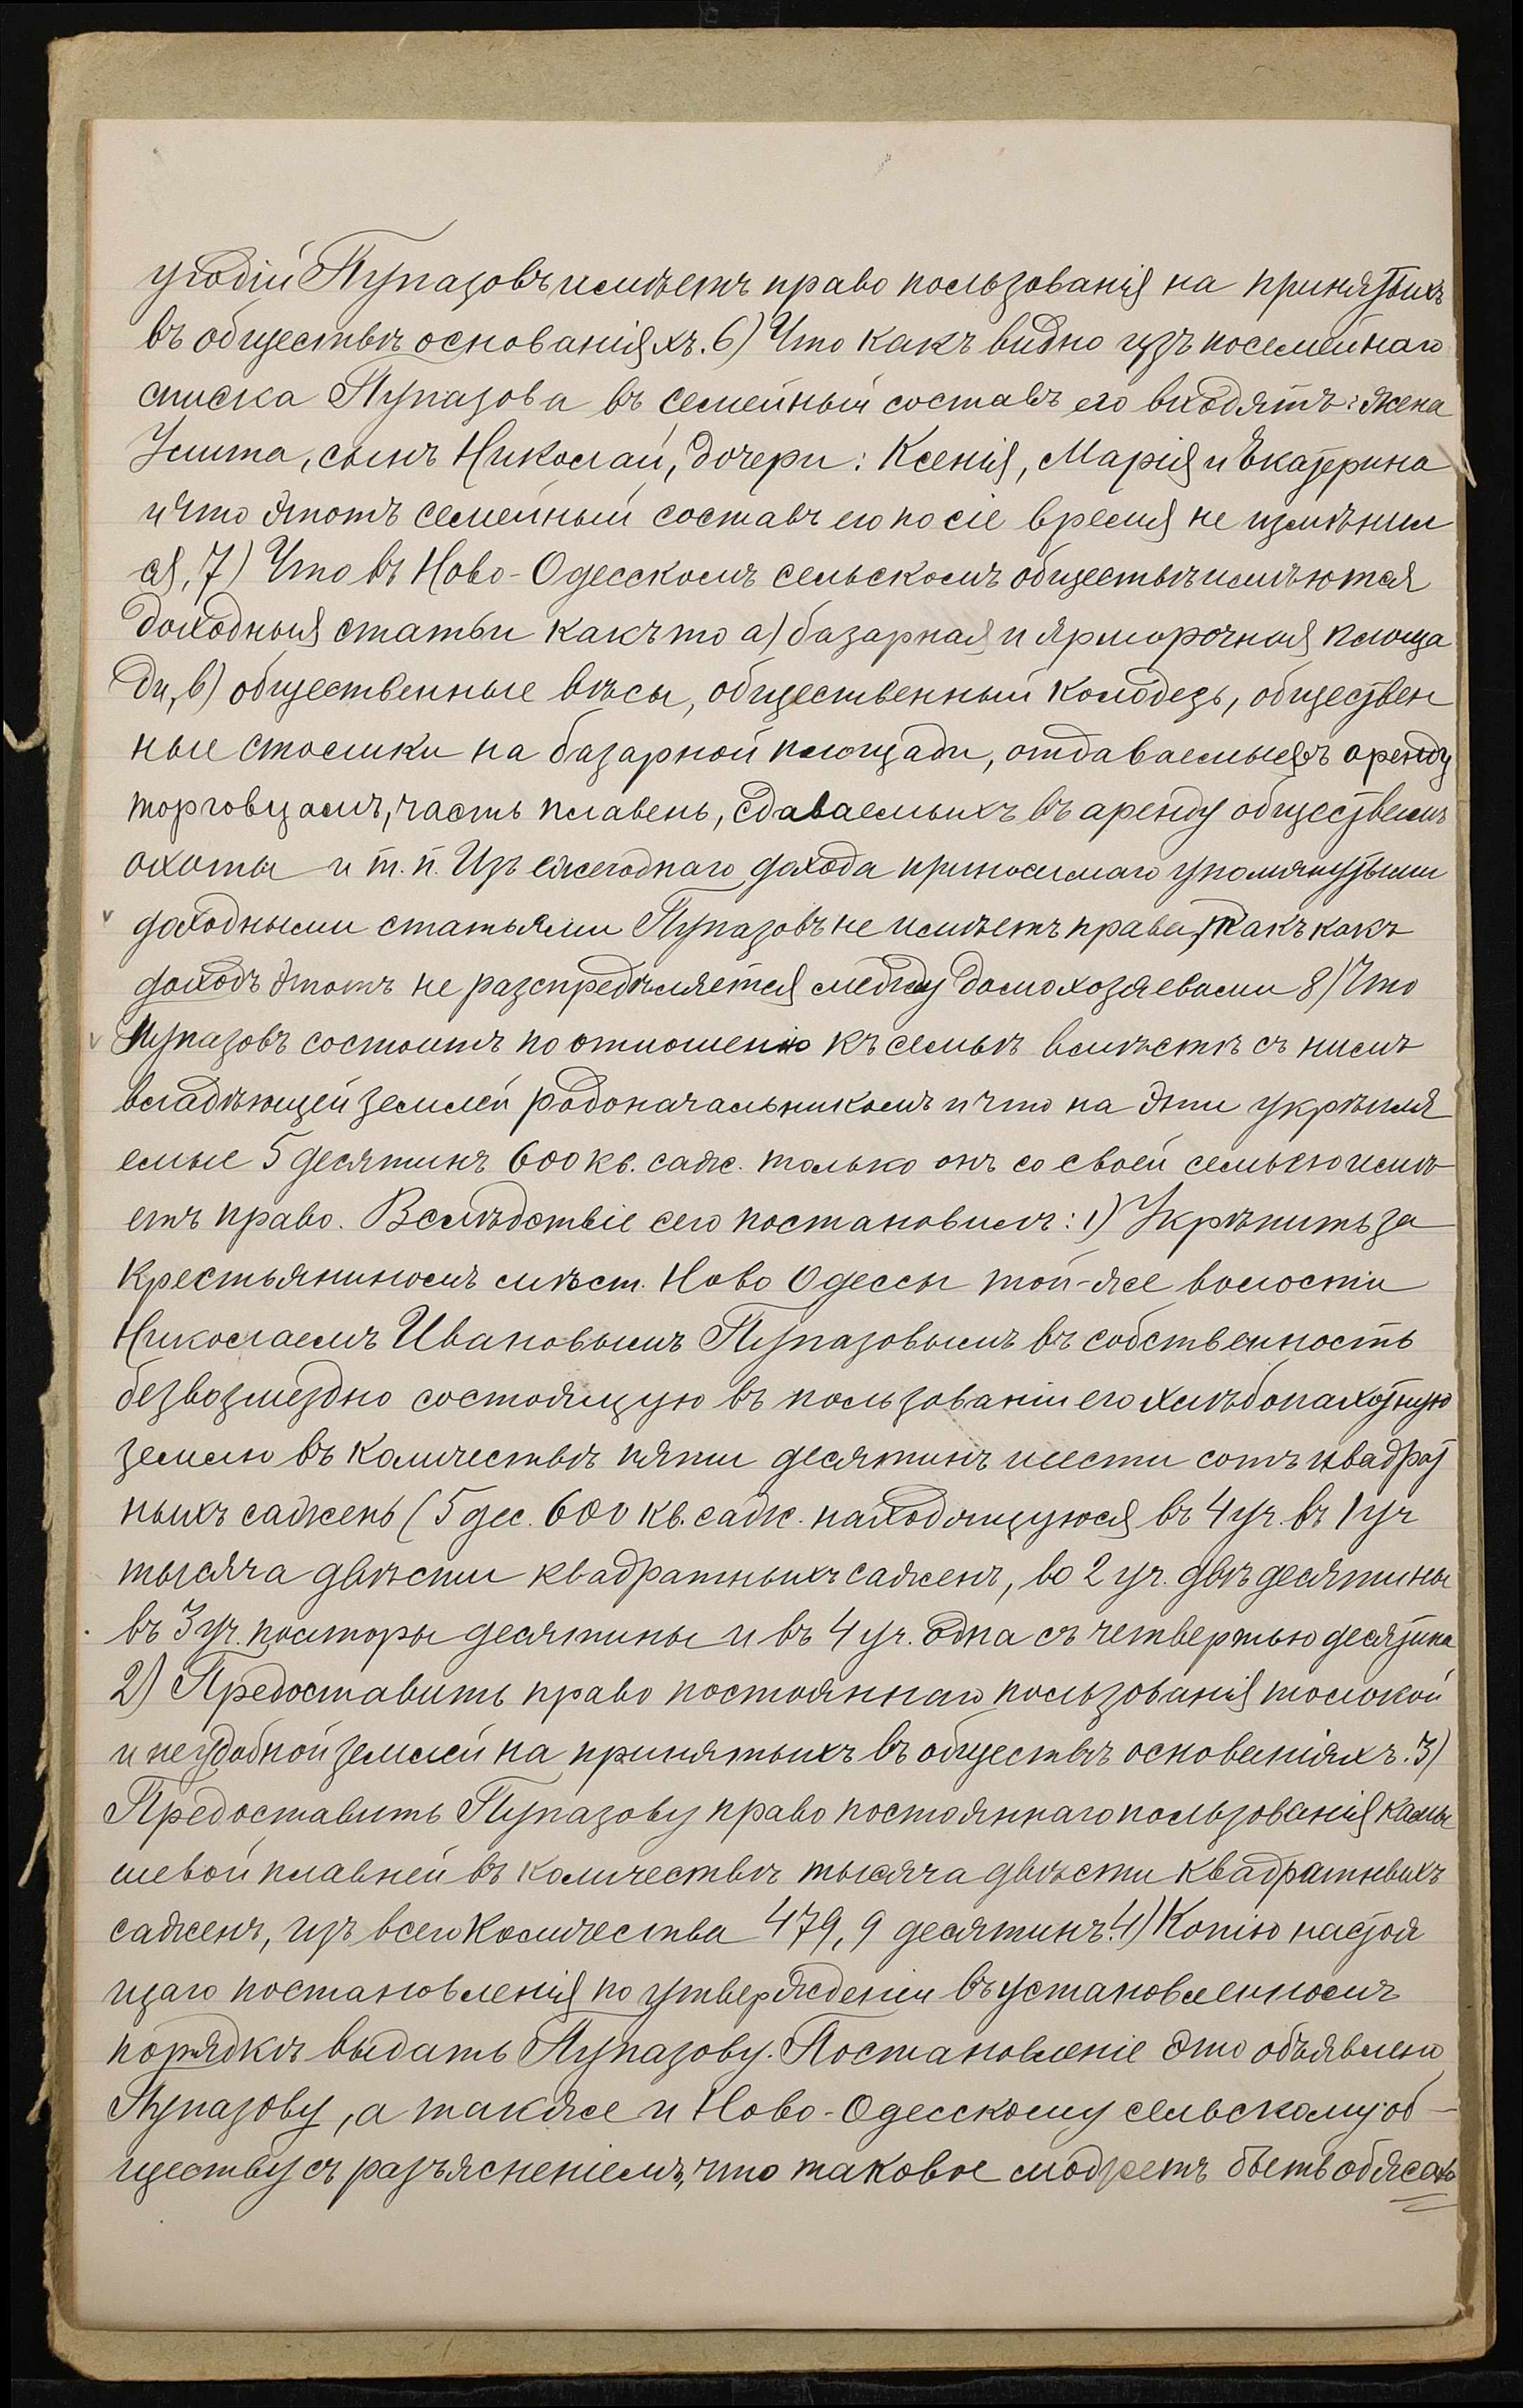 угодій Пупазовъ имѣетъ право пользованія на принятыхъ
въ обществѣ основаніяхъ. 6) Что какъ видно изъ посемейнаго
списка Пупазова въ семейный составъ его входятъ: жена
Улита, сынъ Николай, дочери: Ксенія, Марія и Екатерина
и что этотъ семейный составъ его по сіе время не измѣнил
ся, 7) Что въ Ново-Одесскомъ сельскомъ обществѣ имѣются
доходныя статьи какъ то а) базарная и ярморочная площа
ди, в) общественные вѣсы, общественный колодезь, обществен
ные столики на базарной площади, отдаваемые въ аренду
торговцамъ, часть плавень, сдаваемыхъ въ аренду обществомъ
охоты и т. п. Изъ ежегоднаго дохода приносимаго упомянутыми
доходными статьями Пупазовъ не имѣетъ права, такъ какъ
доходъ этотъ не разспредѣляется между домохозяевами 8) Что
Пупазовъ состоитъ по отношенію къ семьѣ вмѣстѣ съ нимъ
владѣющей землей родоначальникомъ и что на эти укрѣпля
емые 5 десятинъ 600 кв. саж. только онъ со своей семьею имѣ
етъ право. Вслѣдствіе сего постановилъ: 1) Укрѣпить за
крестьяниномъ мѣст. Ново Одессы той-же волости
Николаемъ Ивановымъ Пупазовымъ въ собственность
безвозмездно состоящую въ пользованіи его хлѣбопахотную
землю въ количествѣ пяти десятинъ шести сотъ квадрат
ныхъ сажень (5 дес. 600 кв. саж. находящуюся въ 4 уч. въ 1 уч
тысяча двѣсти квадратныхъ саженъ, во 2 уч. двѣ десятины
въ 3 уч. полторы десятины и въ 4 уч. одна съ четвертью десятина
2) Предоставить право постояннаго пользованія толокой
и неудобной землей на принятыхъ въ обществѣ основаніяхъ. 3)
Предоставить Пупазову право постояннаго пользованія камы
шевой плавней въ количествѣ тысяча двѣсти квадратныхъ
саженъ, изъ всего количества 479,9 десятинъ. 4) Копію настоя
щаго постановленія по утвержденіи въ установленномъ
порядкѣ выдать Пупазову. Постановленіе это объявлено
Пупазову, а также и Ново-Одесскому сельскому об-
ществу съ разъясненіемъ, что таковое можетъ быть обжало